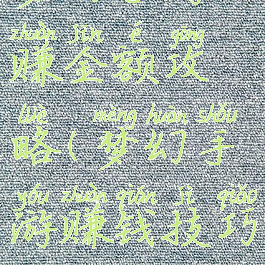 zhuàn jīn é gōng
赚金额攻
lüè mèng huàn shǒu
略(梦幻手
yóu zhuàn qián jì qiǎo
游赚钱技巧